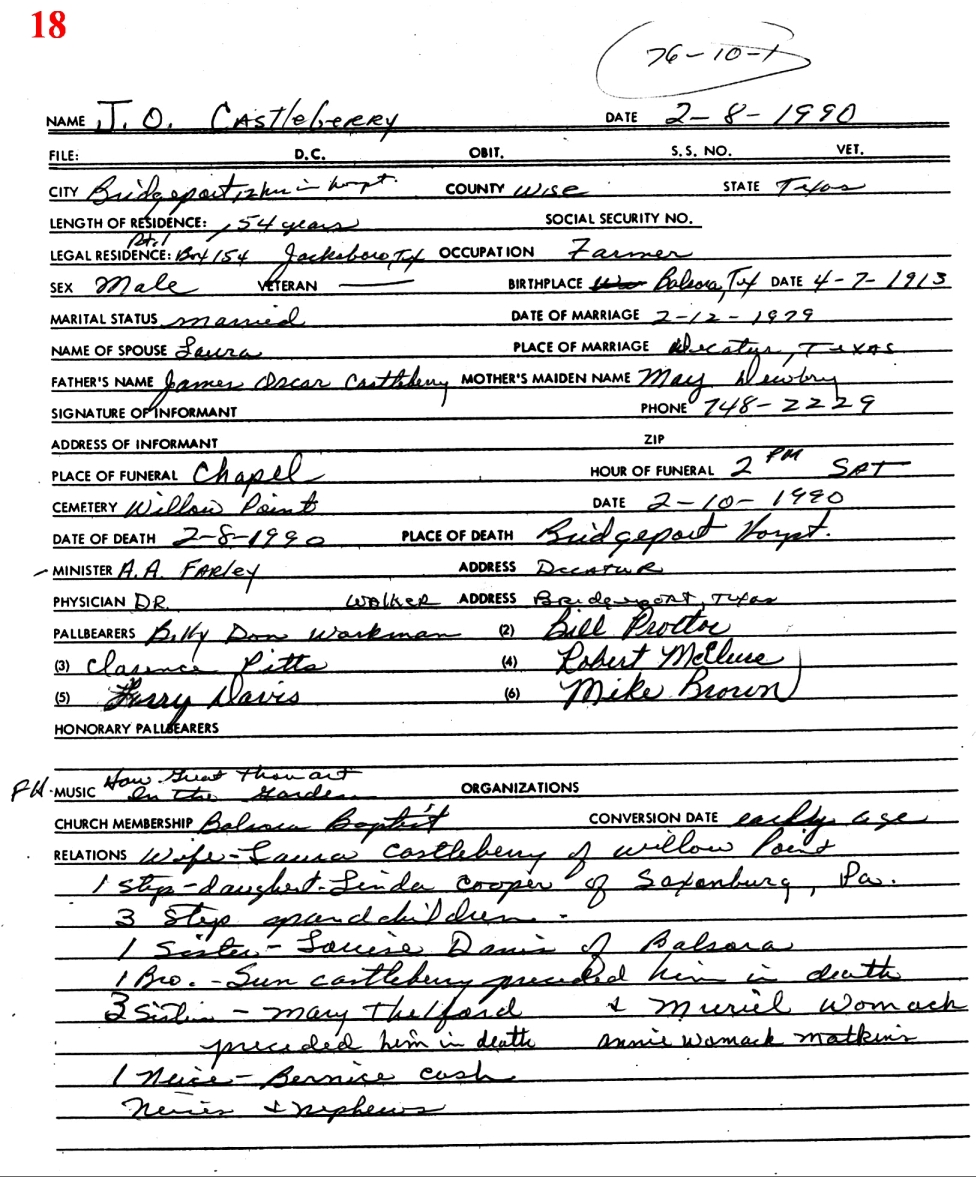 18
76-10-1
NAME J. O. Castleberry DATE 2-8-1990
FILE: D.C. OBIT. S.S. NO. VET.
CITY Bridgeport, in hospt. COUNTY Wise STATE Texas
LENGTH OF RESIDENCE: 54 years SOCIAL SECURITY NO.
Rt. 1
LEGAL RESIDENCE: Box 154 Jacksboro, Tx OCCUPATION Farmer
SEX Male VETERAN — BIRTHPLACE Balsora, Tx DATE 4-7-1913
MARITAL STATUS married DATE OF MARRIAGE 2-12-1979
NAME OF SPOUSE Laura PLACE OF MARRIAGE Decatur, Texas
FATHER'S NAME James Oscar Castleberry MOTHER'S MAIDEN NAME May Newbry
SIGNATURE OF INFORMANT PHONE 748-2229
ADDRESS OF INFORMANT ZIP
PLACE OF FUNERAL Chapel HOUR OF FUNERAL 2 PM SAT
CEMETERY Willow Point DATE 2-10-1990
DATE OF DEATH 2-8-1990 PLACE OF DEATH Bridgeport Hospt.
MINISTER A.A. Farley ADDRESS Decatur
PHYSICIAN DR. Walker ADDRESS Bridgeport, Texas
PALLBEARERS Billy Don Workman (2) Bill Proctor
(3) Clarence Pitts (4) Robert McClure
(5) Larry Davis (6) Mike Brown
HONORARY PALLBEARERS
How Great Thou art
FH. MUSIC In the Garden ORGANIZATIONS
CHURCH MEMBERSHIP Balsora Baptist CONVERSION DATE early age
RELATIONS Wife - Laura Castleberry of Willow Point
1 Step-daughert - Linda Cooper of Saxonburg, Pa.
3 Step grandchildren -
1 Sister - Louise Davis of Balsora
1 Bro. - Sun castleberry preceded him in death
3 Sisters - Mary Thelford & Muriel Womack
preceded him in death annie womack matkins
1 Neice - Bernice Cash
Neices & nephews